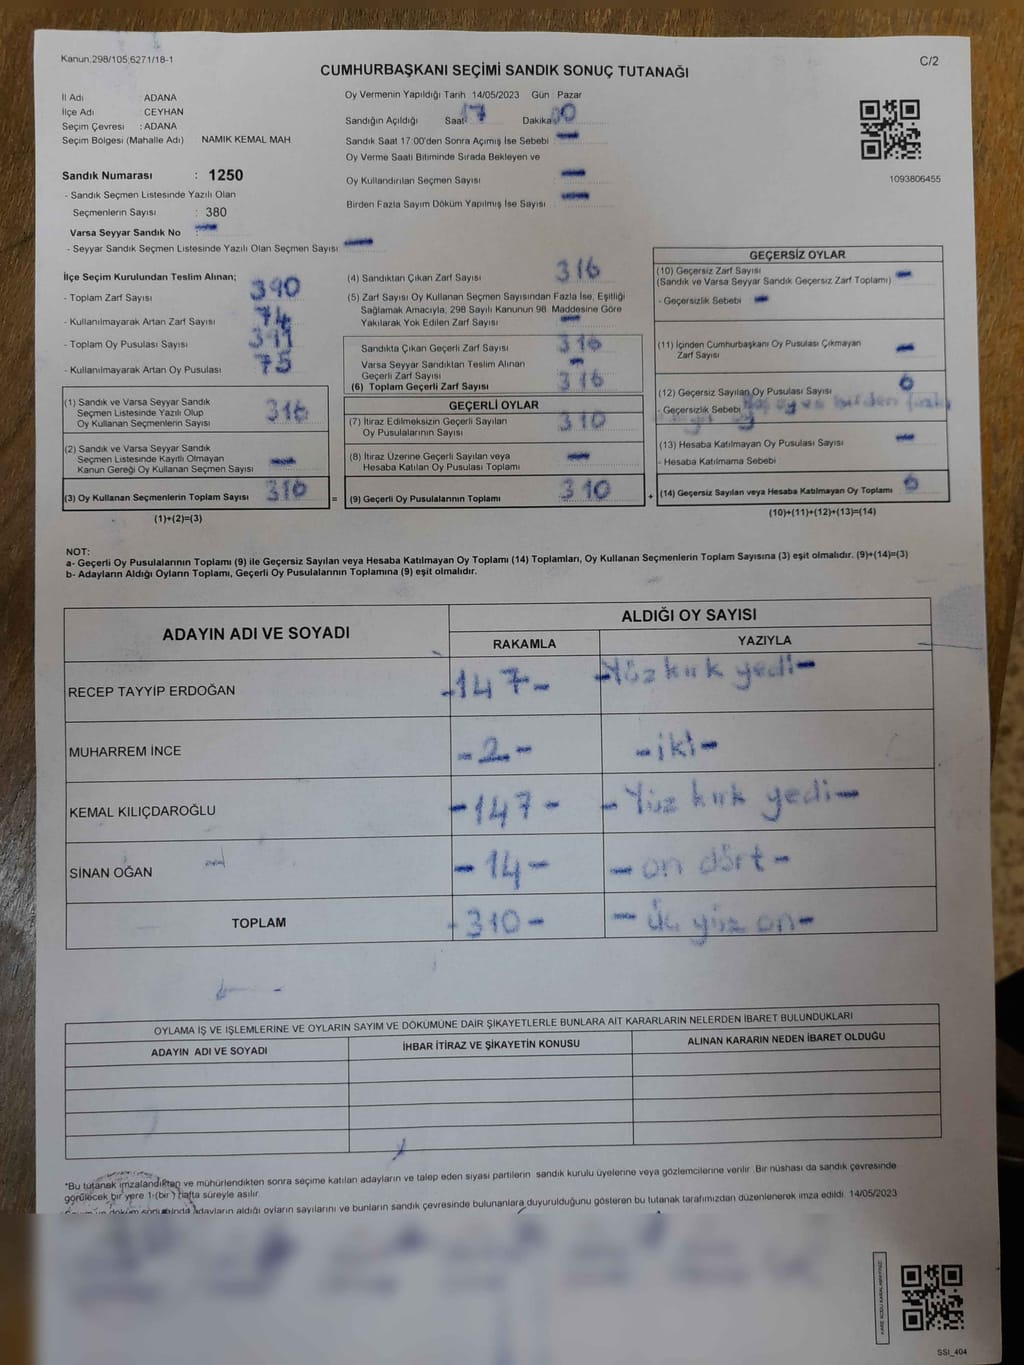 Kanun.298/105,6271/18-1
C/2
CUMHURBAŞKANI SEÇİMİ SANDIK SONUÇ TUTANAĞI
İl Adı : ADANA
İlçe Adı : CEYHAN
Seçim Çevresi : ADANA
Seçim Bölgesi (Mahalle Adı) NAMIK KEMAL MAH
Sandık Numarası : 1250
- Sandık Seçmen Listesinde Yazılı Olan
Seçmenlerin Sayısı : 380
Varsa Seyyar Sandık No :
- Seyyar Sandık Seçmen Listesinde Yazılı Olan Seçmen Sayısı
Oy Vermenin Yapıldığı Tarih 14/05/2023 Gün : Pazar
Sandığın Açıldığı Saat 17 Dakika 00
Sandık Saat 17:00'den Sonra Açımış İse Sebebi
Oy Verme Saati Bitiminde Sırada Bekleyen ve
Oy Kullandırılan Seçmen Sayısı
Birden Fazla Sayım Döküm Yapılmış İse Sayısı
1093806455
İlçe Seçim Kurulundan Teslim Alınan;
- Toplam Zarf Sayısı 390
- Kullanılmayarak Artan Zarf Sayısı 74
- Toplam Oy Pusulası Sayısı 391
- Kullanılmayarak Artan Oy Pusulası 75
(1) Sandık ve Varsa Seyyar Sandık
Seçmen Listesinde Yazılı Olup
Oy Kullanan Seçmenlerin Sayısı 316
(2) Sandık ve Varsa Seyyar Sandık
Seçmen Listesinde Kayıtlı Olmayan
Kanun Gereği Oy Kullanan Seçmen Sayısı
(3) Oy Kullanan Seçmenlerin Toplam Sayısı 316
(1)+(2)=(3)
(4) Sandıktan Çıkan Zarf Sayısı 316
(5) Zarf Sayısı Oy Kullanan Seçmen Sayısından Fazla İse, Eşitliği
Sağlamak Amacıyla, 298 Sayılı Kanunun 98. Maddesine Göre
Yakılarak Yok Edilen Zarf Sayısı
Sandıkta Çıkan Geçerli Zarf Sayısı 316
Varsa Seyyar Sandıktan Teslim Alınan
Geçerli Zarf Sayısı
(6) Toplam Geçerli Zarf Sayısı 316
GEÇERLİ OYLAR
(7) İtiraz Edilmeksizin Geçerli Sayılan
Oy Pusulalarının Sayısı 310
(8) İtiraz Üzerine Geçerli Sayılan veya
Hesaba Katılan Oy Pusulası Toplamı
= (9) Geçerli Oy Pusulalarının Toplamı 310 +
GEÇERSİZ OYLAR
(10) Geçersiz Zarf Sayısı
(Sandık ve Varsa Seyyar Sandık Geçersiz Zarf Toplamı)
- Geçersizlik Sebebi
(11) İçinden Cumhurbaşkanı Oy Pusulası Çıkmayan
Zarf Sayısı
(12) Geçersiz Sayılan Oy Pusulası Sayısı 6
- Geçersizlik Sebebi Boş oy ve birden fazla
oy
(13) Hesaba Katılmayan Oy Pusulası Sayısı
- Hesaba Katılmama Sebebi
(14) Geçersiz Sayılan veya Hesaba Katılmayan Oy Toplamı 6
(10)+(11)+(12)+(13)=(14)
NOT:
a- Geçerli Oy Pusulalarının Toplamı (9) ile Geçersiz Sayılan veya Hesaba Katılmayan Oy Toplamı (14) Toplamları, Oy Kullanan Seçmenlerin Toplam Sayısına (3) eşit olmalıdır. (9)+(14)=(3)
b- Adayların Aldığı Oyların Toplamı, Geçerli Oy Pusulalarının Toplamına (9) eşit olmalıdır.
ADAYIN ADI VE SOYADI
ALDIĞI OY SAYISI
RAKAMLA YAZIYLA
RECEP TAYYİP ERDOĞAN -147- -Yüz kırk yedi-
MUHARREM İNCE -2- -iki-
KEMAL KILIÇDAROĞLU -147- -Yüz kırk yedi-
SİNAN OĞAN -14- -on dört-
TOPLAM -310- -üç yüz on-
OYLAMA İŞ VE İŞLEMLERİNE VE OYLARIN SAYIM VE DÖKÜMÜNE DAİR ŞİKAYETLERLE BUNLARA AİT KARARLARIN NELERDEN İBARET BULUNDUKLARI
ADAYIN ADI VE SOYADI İHBAR İTİRAZ VE ŞİKAYETİN KONUSU ALINAN KARARIN NEDEN İBARET OLDUĞU
*Bu tutanak imzalandıktan ve mühürlendikten sonra seçime katılan adayların ve talep eden siyasi partilerin sandık kurulu üyelerine veya gözlemcilerine verilir. Bir nüshası da sandık çevresinde
görülecek bir yere 1 (bir) hafta süreyle asılır.
adayların aldığı oyların sayılarını ve bunların sandık çevresinde bulunanlara duyurulduğunu gösteren bu tutanak tarafımızdan düzenlenerek imza edildi. 14/05/2023
SSI_404